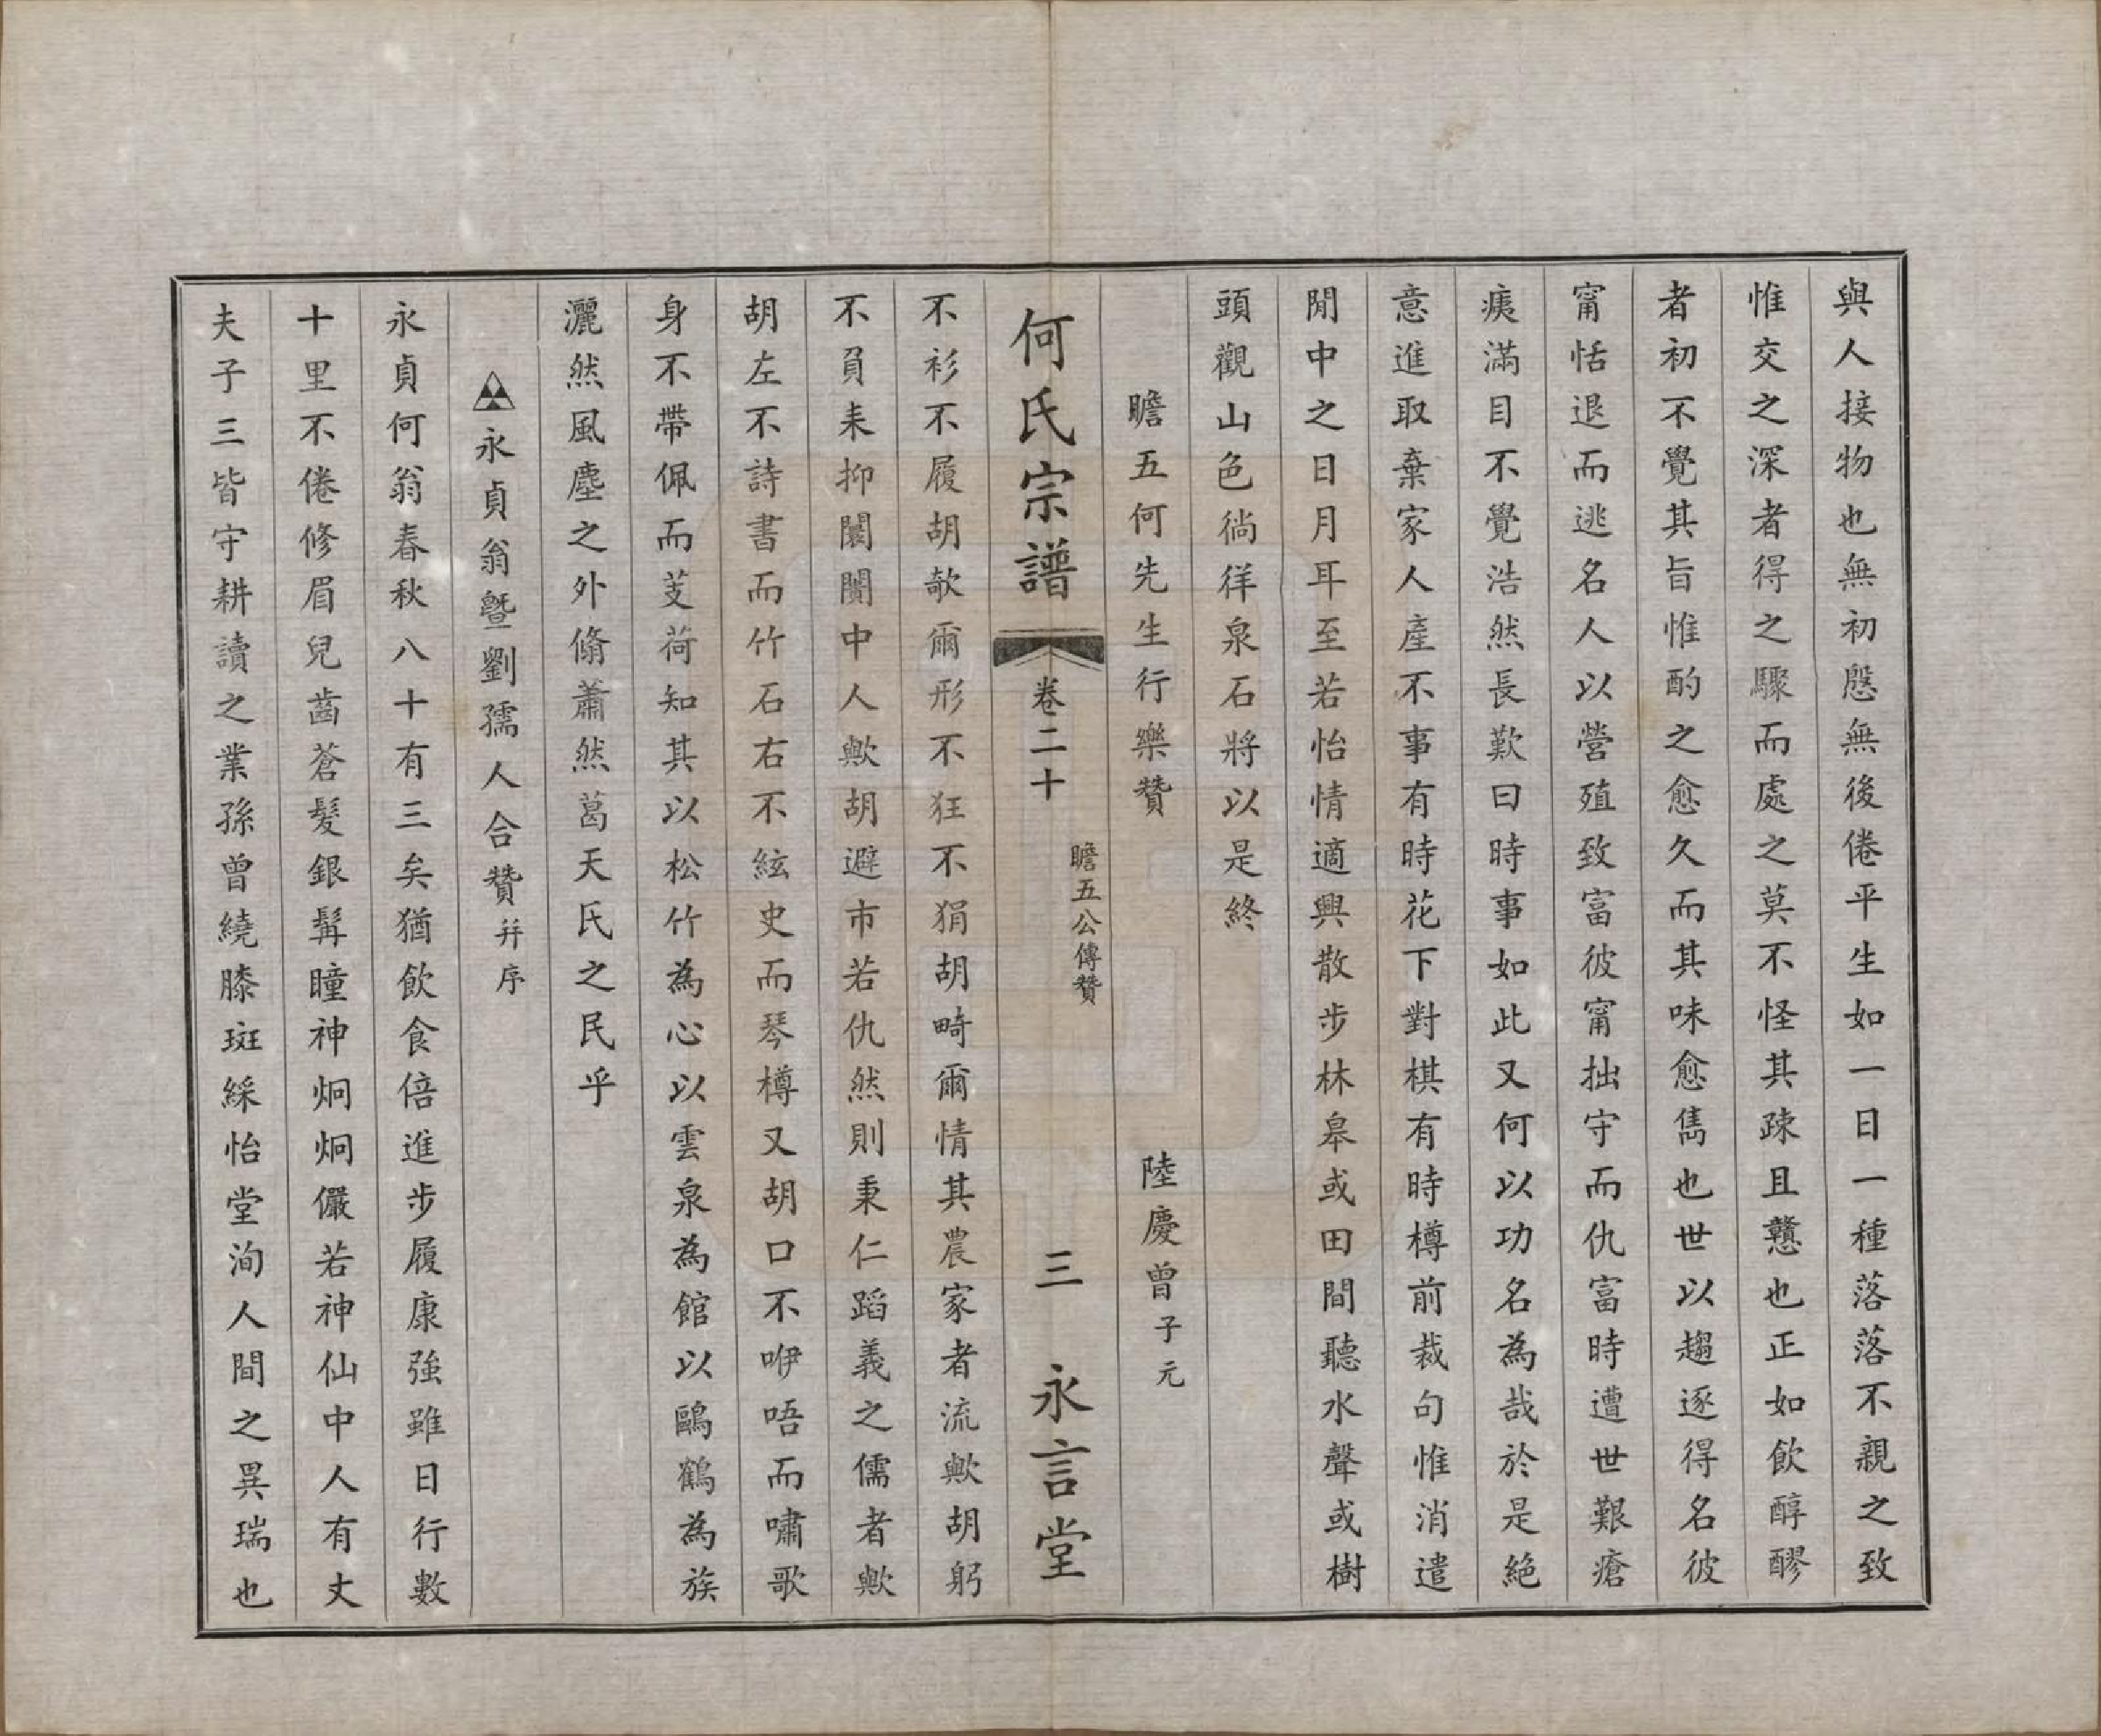 與人接物也無初慇無後倦平生如一日一種落落不親之致
惟交之深者得之驟而處之莫不怪其疎且戇也正如飲醇醪
者初不覺其旨惟酌之愈久而其味愈雋也世以趨逐得名彼
甯恬退而逃名人以營殖致富彼甯拙守而仇富時遭世艱瘡
痍滿目不覺浩然長歎曰時事如此又何以功名為哉於是絕
意進取棄家人產不事有時花下對棋有時樽前裁句惟消遣
閒中之日月耳至若怡情適興散步林皋或田間聽水聲或樹
頭觀山色徜徉泉石將以是終
瞻五何先生行樂贊 陸慶曾子元
何氏宗譜 卷二十 瞻五公傳贊 三 永言堂
不衫不履胡欹爾形不狂不狷胡畸爾情其農家者流歟胡躬
不負耒抑闤闠中人歟胡避市若仇然則秉仁蹈義之儒者歟
胡左不詩書而竹石右不絃史而琴樽又胡口不咿唔而嘯歌
身不帶佩而芰荷知其以松竹為心以雲泉為館以鷗鶴為族
灑然風塵之外翛蕭然葛天氏之民乎
永貞翁曁劉孺人合贊幷序
永貞何翁春秋八十有三矣猶飲食倍進步履康強雖日行數
十里不倦修眉兒齒蒼髮銀髯瞳神炯炯儼若神仙中人有丈
夫子三皆守耕讀之業孫曾繞膝斑綵怡堂洵人間之異瑞也